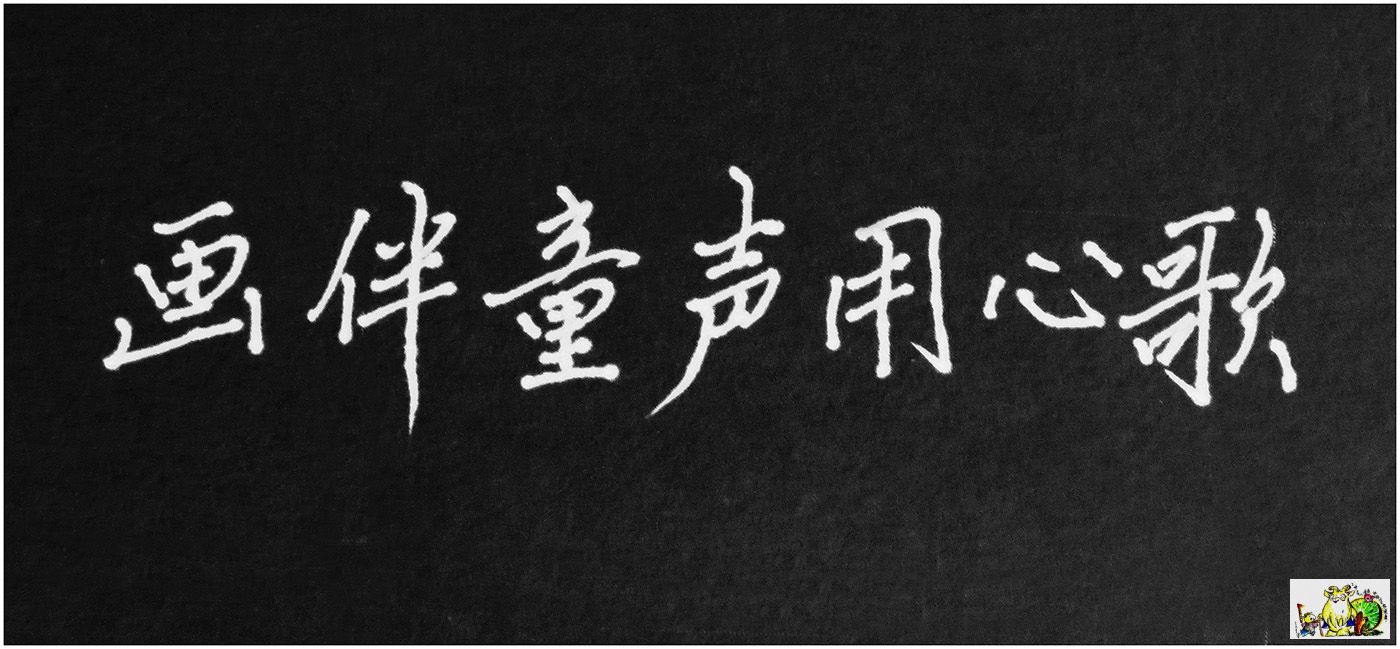 画伴童声用心歌